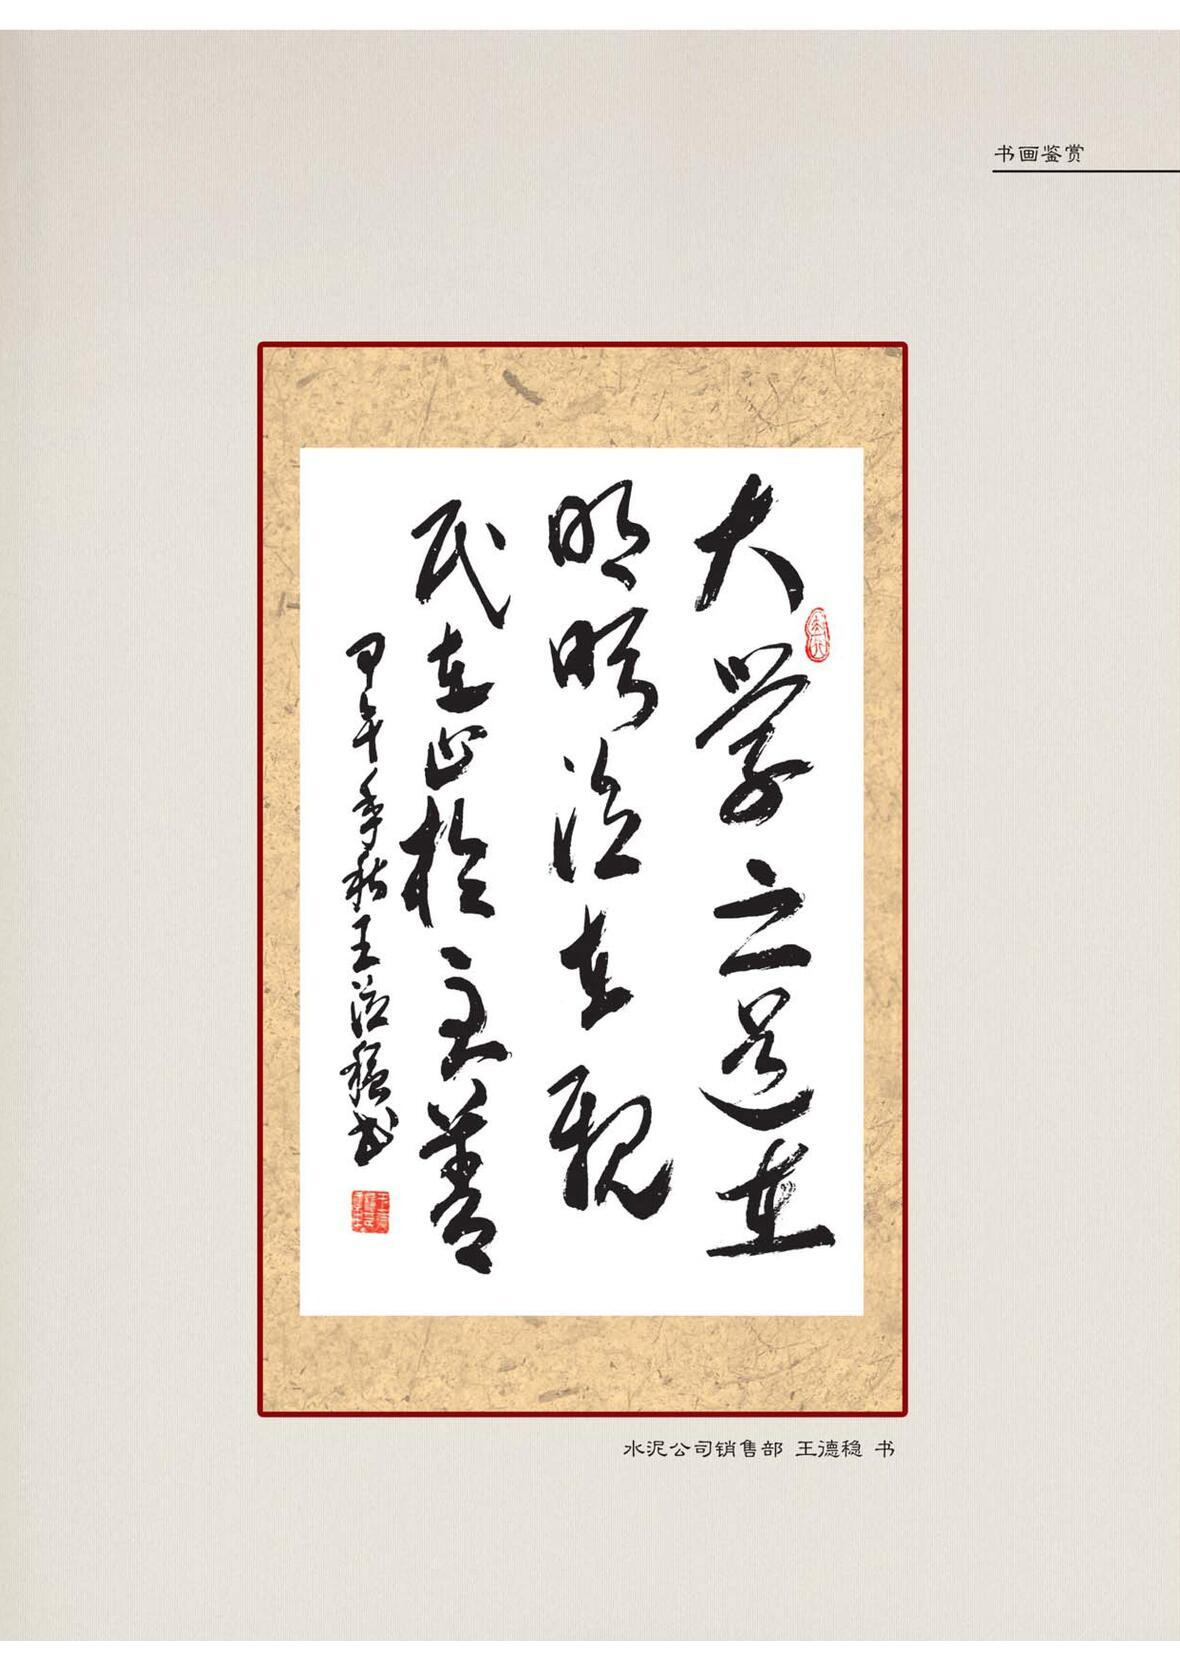 书画鉴赏
大学之道在
明明德在親
民在止於至善
甲午年秋王德稳书
水泥公司销售部 王德稳 书